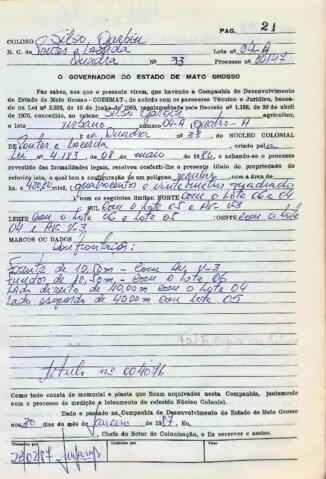 PAG. 21
COLONO Silso Garbin
N. C. de Pontes e Lacerda Lote nº 04-A
Quadra Nº 33 Processo nº 00147
O GOVERNADOR DO ESTADO DE MATO GROSSO
Faz saber, aos que o presente virem, que havendo a Companhia de Desenvolvimento
do Estado de Mato Grosso - CODEMAT-, de acôrdo com os pareceres Técnico e Jurídico, basea-
da na Lei de 10 de junho de regulamentada pelo Decreto n. 1.138, de 30 de abril
de 1970, concedido, ao colono Silso Garbin agricultor,
o lote urbano número 04-A quadro-A
da Quadra nº 33, DE NÚCLEO COLONIAL
de Pontes e Lacerda criado pela
Lei nº 4.183, de 08, de maio de 1980, e achando-se o processo
revestido das formalidades legais, resolveu conferir-lhe o presente título de propriedade do
referido lote, o qual tem a configuração de um polígono regular com a área de
hs 420,00 (quatrocentos e vinte metros quadrados
com os seguintes limites: NORTE Com o Lote 06 e 04
SUL Com o Lote 05 e AV-V-3
LESTE Com o Lote 06 e Lote 05 :OESTE Com o Lote
04 e AV V-3
MARCOS OU DADOS Confrontações:
Frente de 10,50m - Com Av. V-3
Fundos de 10,50m - Com o Lote 06
Lado direito de 40,00m com o Lote 04
Lado esquerdo de 40,00m com Lote 05
Titulo nº 004076
Como tudo consta do memorial e planta que ficam arquivados nesta Companhia, juntamente
com o processo de medição e loteamento do referido Núcleo Colonial.
Dado e passado na Companhia de Desenvolvimento do Estado de Mato Grosso
aos 30 dias do mês de janeiro de 1987. Eu,
Chefe do Setor de Colonização, o fiz escrever e assino.
Visto